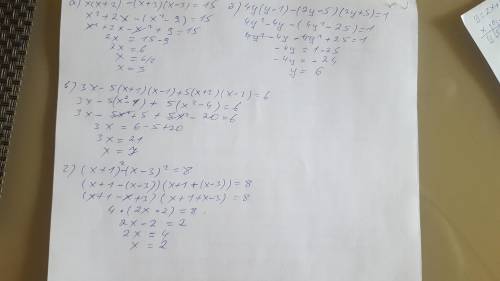 а) x(x+2)-(x+3)(x-3)=15
x²+2x-(x²-9)=15
x²+2x-x²+9=15
2x=15-9
2x=6
x=6/2
x=3
б) 3x-5(x+1)(x-1)+5(x+2)(x-2)=6
3x-5(x²-1)+5(x²-4)=6
3x-5x²+5+5x²-20=6
3x=6-5+20
3x=21
x=7
г) (x+1)²-(x-3)²=8
(x+1-(x-3))(x+1+(x-3))=8
(x+1-x+3)(x+1+x-3)=8
4·(2x-2)=8
2x-2=2
2x=4
x=2
4y(y-1)-(2y-5)(2y+5)=1
4y²-4y-(4y²-25)=1
4y²-4y-4y²+25=1
-4y=1-25
-4y=-24
y=6